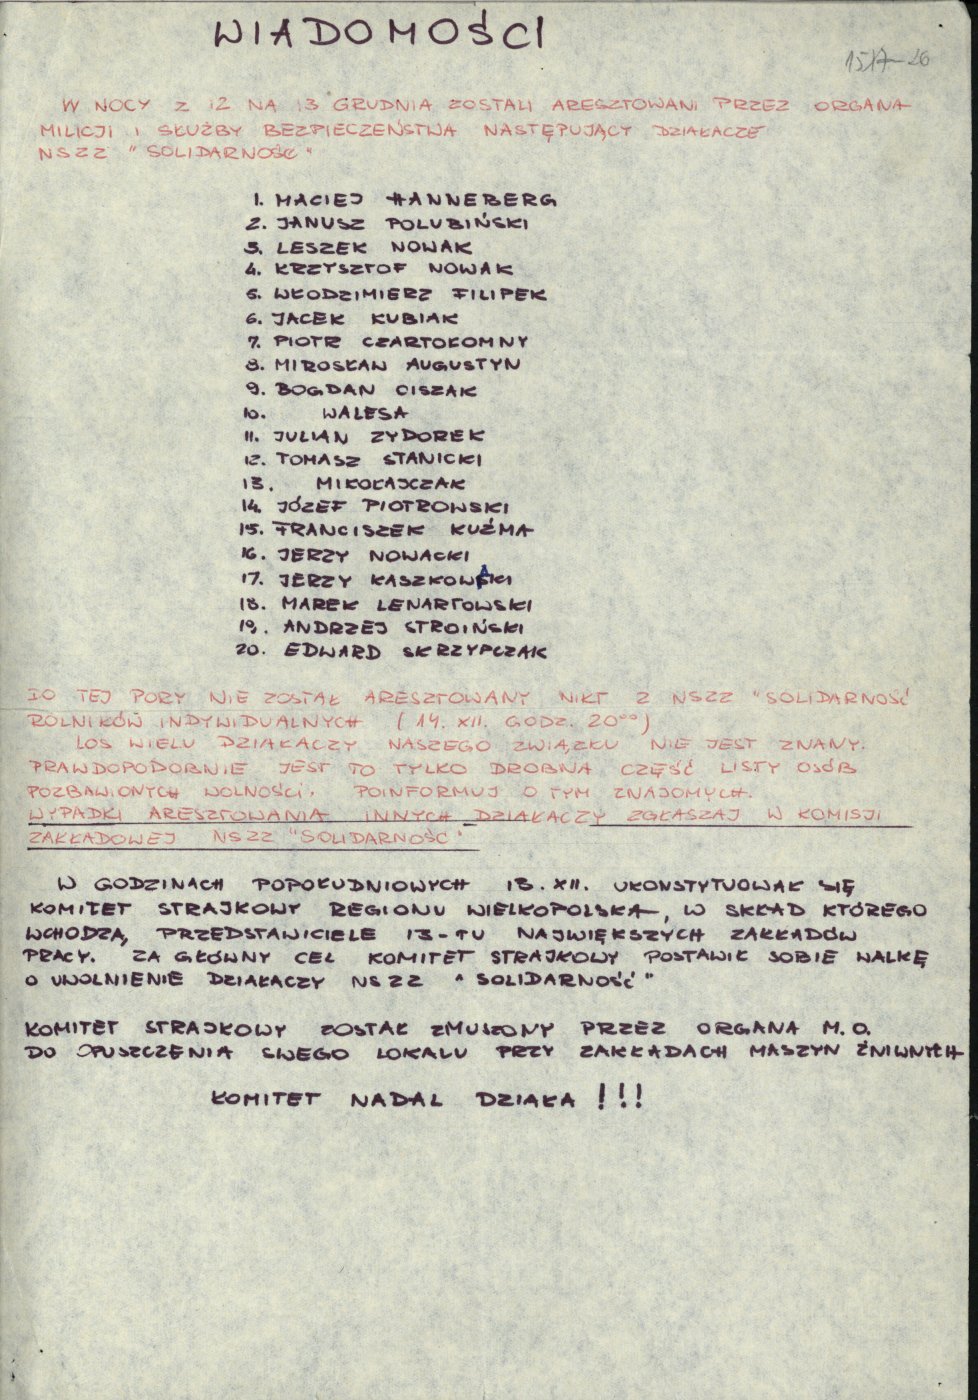 WIADOMOŚCI
1517-26
W NOCY Z 12 NA 13 GRUDNIA ZOSTALI ARESZTOWANI PRZEZ ORGANA
MILICJI I SŁUŻBY BEZPIECZEŃSTWA NASTĘPUJĄCY DZIAŁACZE
NSZZ "SOLIDARNOŚĆ"
1. MACIEJ HANNEBERG
2. JANUSZ POLUBIŃSKI
3. LESZEK NOWAK
4. KRZYSZTOF NOWAK
5. WŁODZIMIERZ FILIPEK
6. JACEK KUBIAK
7. PIOTR CZARTOŁOMNY
8. MIROSŁAW AUGUSTYN
9. BOGDAN CISZAK
10. WALESA
11. JULIAN ZYDOREK
12. TOMASZ STANICKI
13. MIKOŁAJCZAK
14. JÓZEF PIOTROWSKI
15. FRANCISZEK KUŹMA
16. JERZY NOWACKI
17. JERZY KASZKOWSKI
18. MAREK LENARTOWSKI
19. ANDRZEJ STROIŃSKI
20. EDWARD SKRZYPCZAK
DO TEJ PORY NIE ZOSTAŁ ARESZTOWANY NIKT Z NSZZ "SOLIDARNOŚĆ
ROLNIKÓW INDYWIDUALNYCH (14. XII. GODZ. 20°°)
LOS WIELU DZIAŁACZY NASZEGO ZWIĄZKU NIE JEST ZNANY.
PRAWDOPODOBNIE JEST TO TYLKO DROBNA CZĘŚĆ LISTY OSÓB
POZBAWIONYCH WOLNOŚCI. POINFORMUJ O TYM ZNAJOMYCH.
WYPADKI ARESZTOWANIA INNYCH DZIAŁACZY ZGŁASZAJ W KOMISJI
ZAKŁADOWEJ NSZZ "SOLIDARNOŚĆ"
W GODZINACH POPOŁUDNIOWYCH 13.XII. UKONSTYTUOWAŁ SIĘ
KOMITET STRAJKOWY REGIONU WIELKOPOLSKA, W SKŁAD KTÓREGO
WCHODZĄ, PRZEDSTAWICIELE 13-TU NAJWIĘKSZYCH ZAKŁADÓW
PRACY. ZA GŁÓWNY CEL KOMITET STRAJKOWY POSTAWIŁ SOBIE WALKĘ
O UWOLNIENIE DZIAŁACZY NSZZ "SOLIDARNOŚĆ"
KOMITET STRAJKOWY ZOSTAŁ ZMUSZONY PRZEZ ORGANA M.O.
DO OPUSZCZENIA SWEGO LOKALU PRZY ZAKŁADACH MASZYN ŻNIWNYCH
KOMITET NADAL DZIAŁA !!!